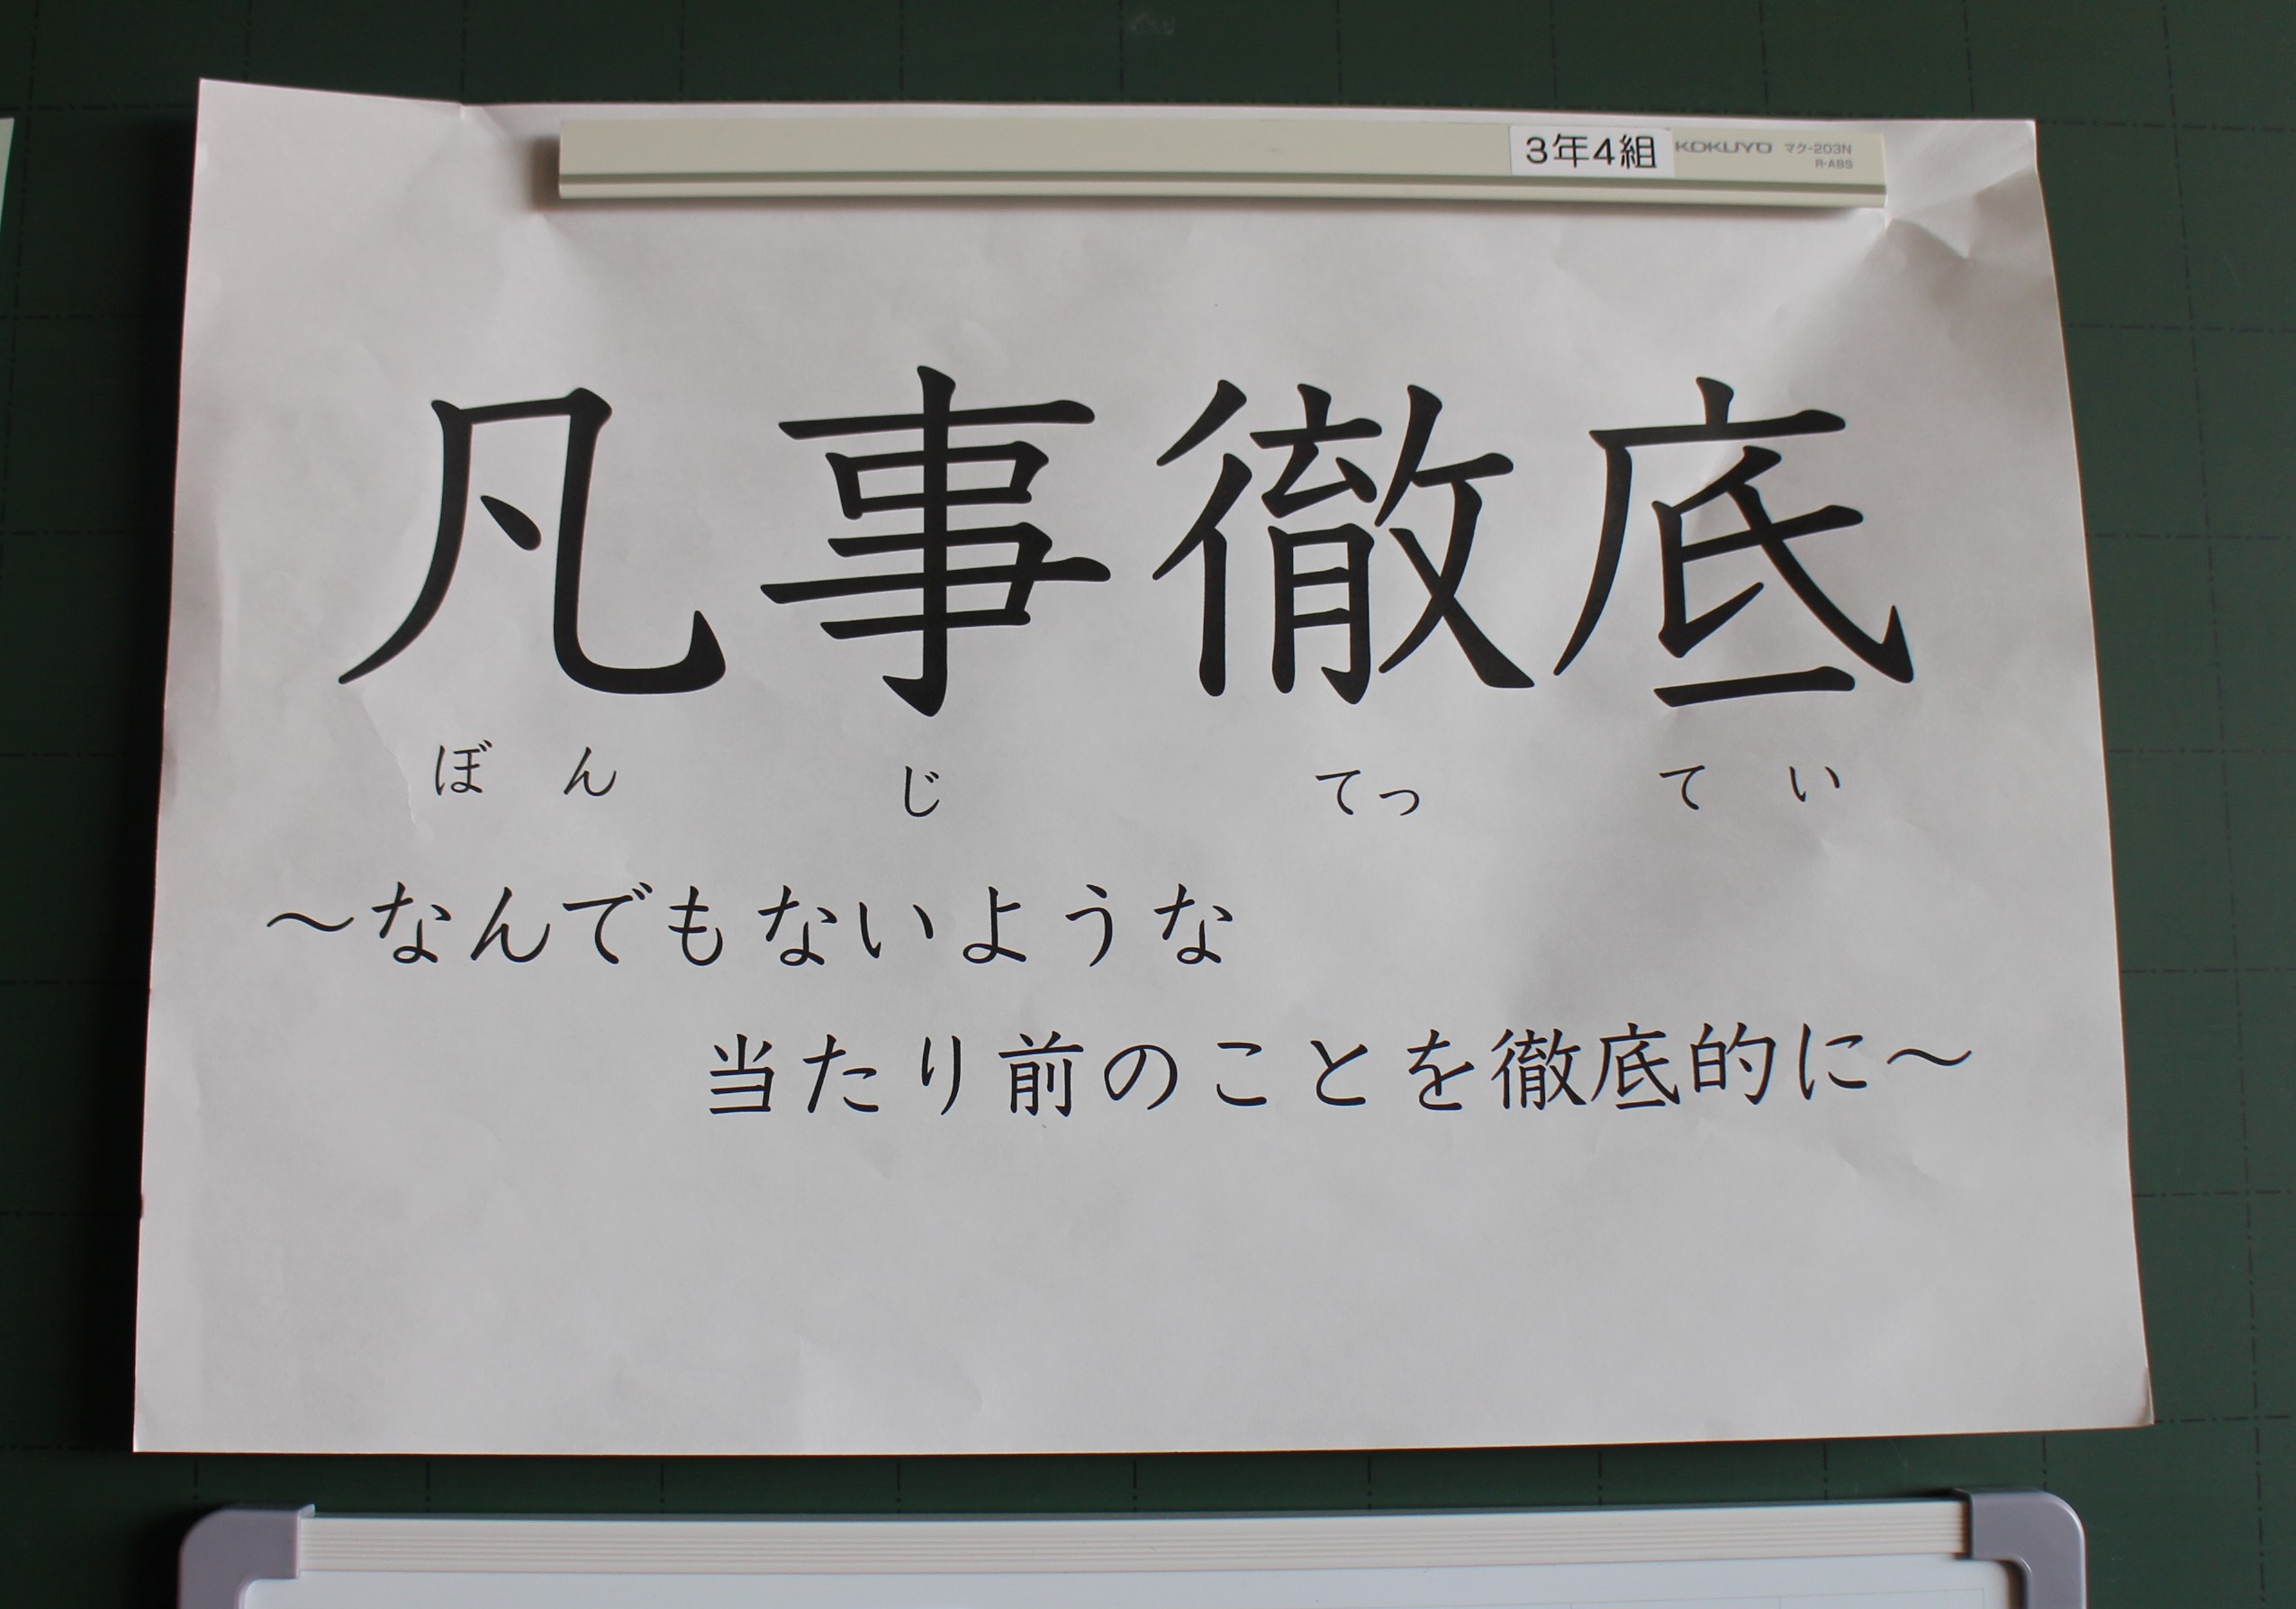 3年4組 KOKUYO マク-203N
R-ABS
凡事徹底
ぼんじてってい
～なんでもないような
当たり前のことを徹底的に～